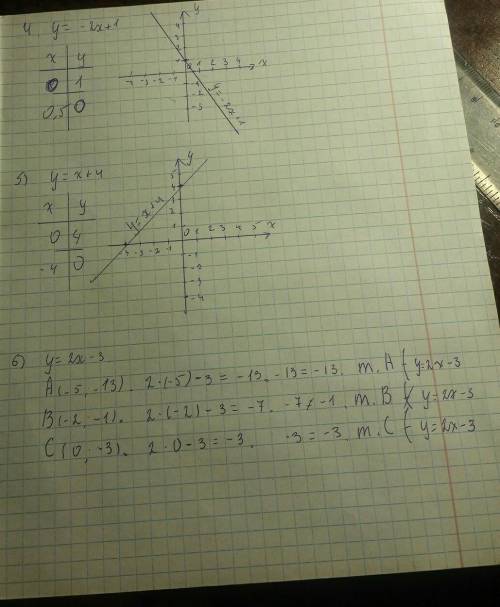 4, y = -2x+1
x y
0 1
0,5 0
y
x
-4 -3 -2 -1 0 1 2 3 4
y = -2x+1
5) y = x+4
x y
0 4
-4 0
y
x
-4 -3 -2 -1 0 1 2 3 4 5
y = x+4
6) y = 2x-3
A(-5, -13). 2·(-5)-3 = -13. -13 = -13. т. A ∈ y=2x-3
B(-2, -1). 2·(-2)-3 = -7. -7 ≠ -1. т. B ∉ y=2x-3
C(0, -3). 2·0-3 = -3. -3 = -3. т. C ∈ y=2x-3